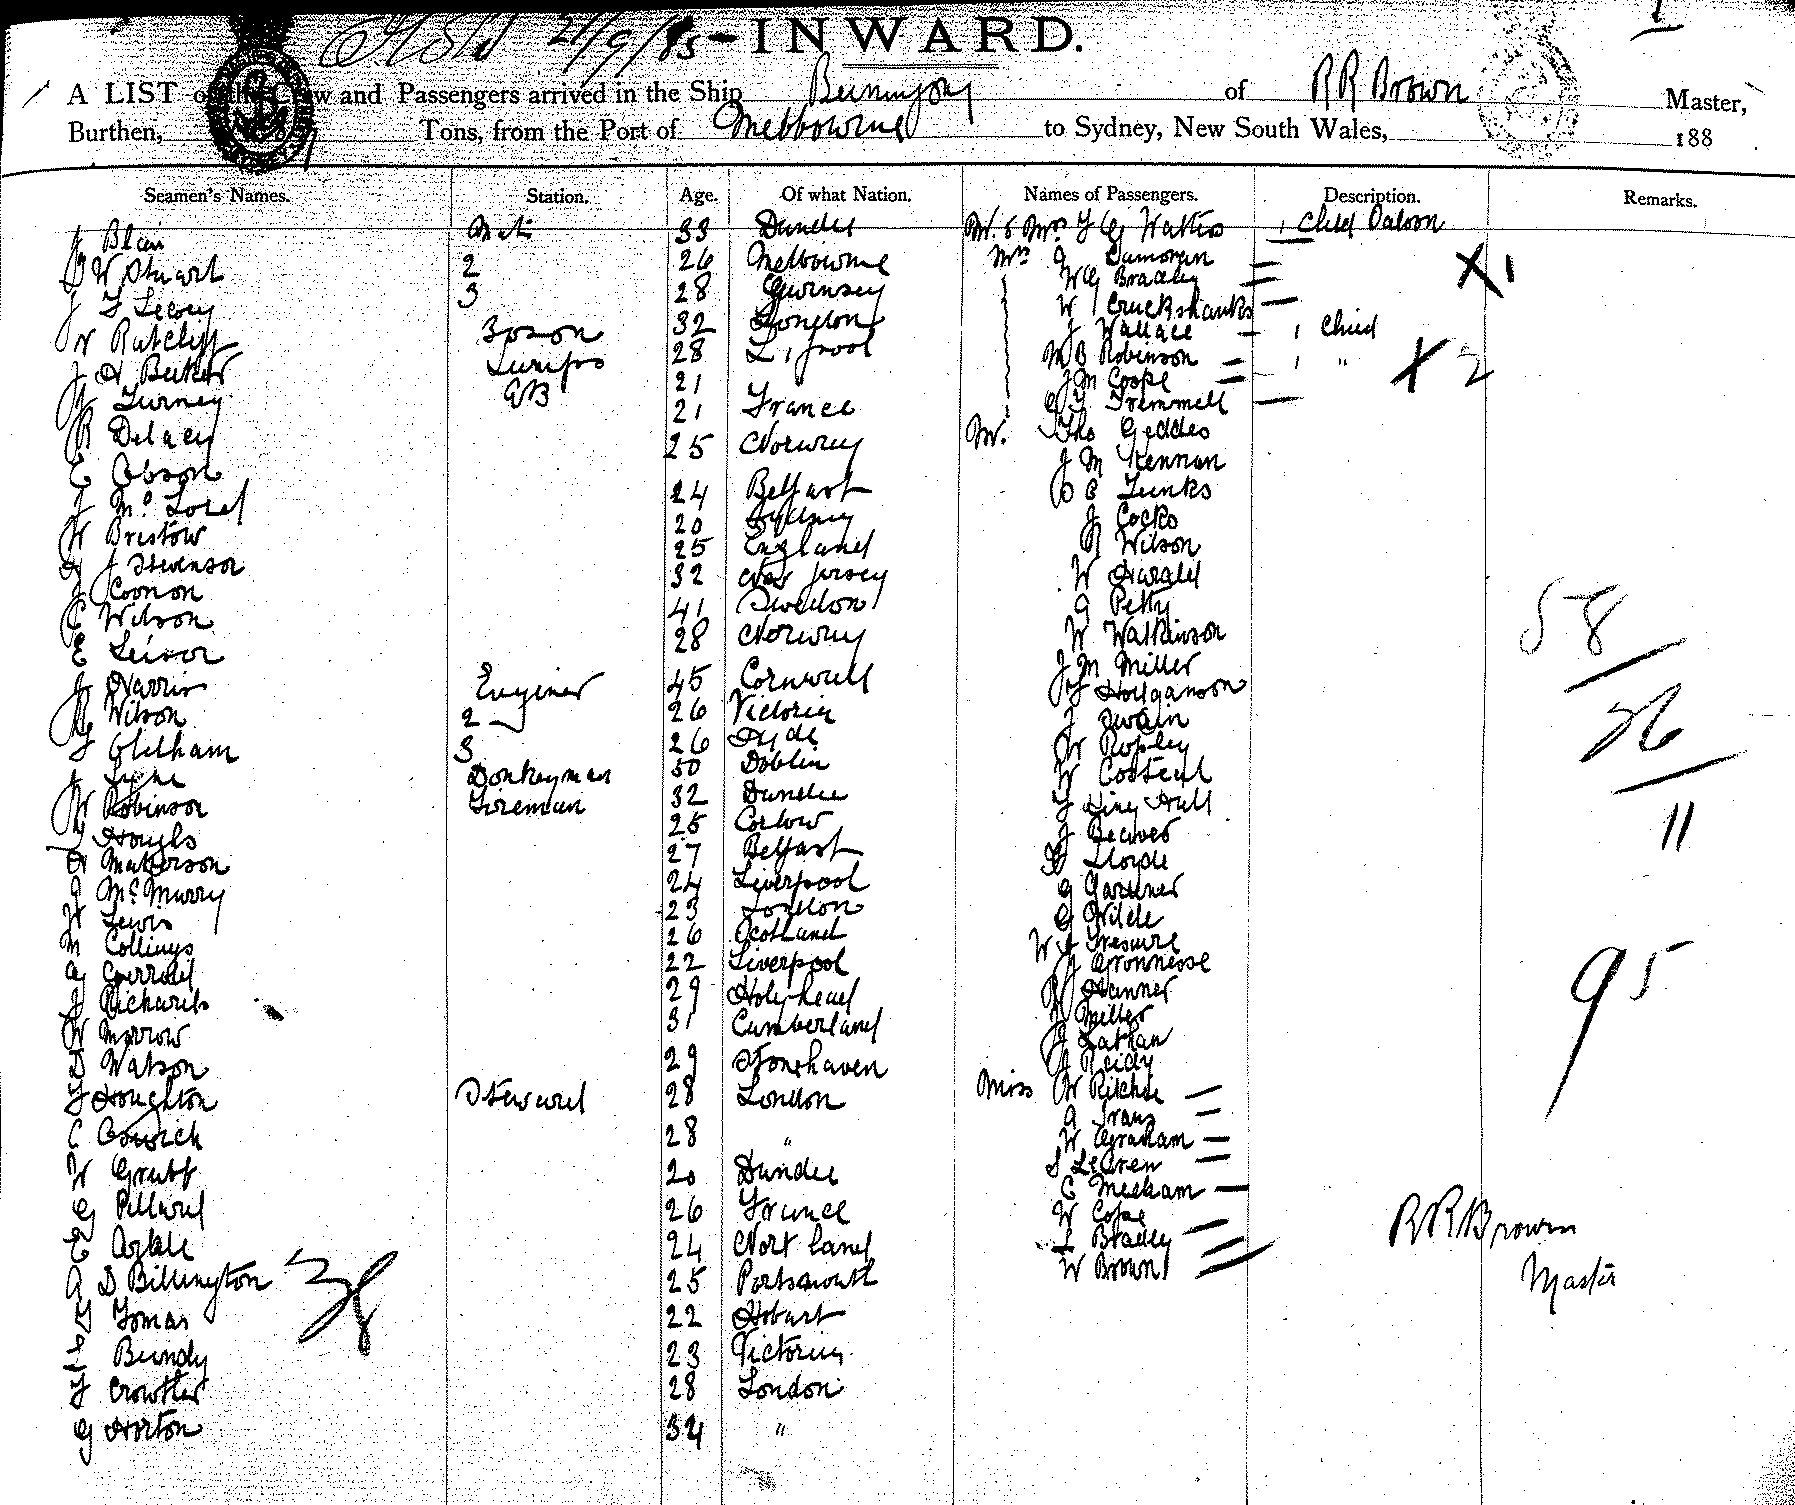 21/9/85 - INWARD.
A LIST of the Crew and Passengers arrived in the Ship Buninyong of R R Brown Master,
Burthen, Tons, from the Port of Melbourne to Sydney, New South Wales, 188
Seamen's Names. Station. Age. Of what Nation. Names of Passengers. Description. Remarks.
J Blair Mate 33 Dundee Mr. & Mrs J G Watters 1 Child Saloon
W Stuart 2 26 Melbourne Mrs Damoran X 1
J F Lecoy 3 28 Guernsey W G Bradley
W Ratcliff Boson 32 London W Cruckshanks
J H Beeker Lamps 28 L'pool J Wallace 1 Child
J Turney AB 21 M B Robinson 1 " X 2
R Delacy 21 France J M Cooke
E Obson 25 Norway G F Tremmell
J Mc Lord 24 Belfast Mr. Thos Geddes
W Bristow 20 Sydney J M Kennan
H J Stevenson 25 England O B Tunks
J Coonon 32 New Jersey J Cocks
C Wilson 41 Sweedon R Wilson
E Leisor 28 Norway W
J Harris Enginer 45 Cornwall G Petty
Wilson 2 26 Victoria W Watkinson
F Oldham 3 26 Hyde J M Miller
J Syne Donkeyman 50 Doblin J Hodganson
W Robinson Fireman 32 Dundee J Swain
25 Corlow W Ropley
H 27 Belfast W Costeal
J McMurry 24 Liverpool F King Hall
H Lewis 23 London J Beaver
M Collings 26 Scotland Lloyde
G Carroll 22 Liverpool G Gardener
J Richards 29 Holyhead G Wilde
W Morrow 31 Cumberland W J Tresure
D Watson 29 Stonehaven
F Houghton Steward 28 London R Hanner
C 28 " Miller
W Grubb 20 Dundee J Lathan
G Pillard 26 France Reidy
E 24 Portland Miss W Ritchie
A D Billington 38 25 Portsmouth
F Tomas 22 Hobart W Graham
Bundy 23 Victoria S LeCren
F Crowther 28 London C Meekam
G Horton 34 " W Cope
L Bradley
W Brown
58
36
11
95
R R Brown
Master